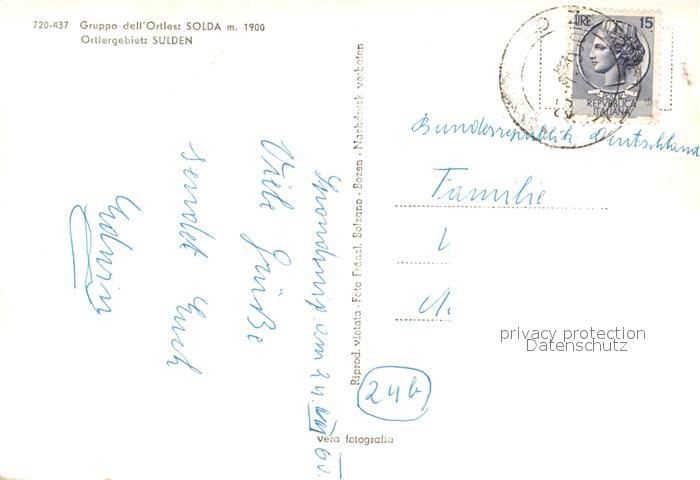 720-437 Gruppo dell'Ortles: SOLDA m. 1900
Ortlergebiet: SULDEN
LIRE 15
REPVBBLICA
ITALIANA
Bundesrepublik Deutschland
Familie
privacy protection
Datenschutz
24b
Riprod. vietata - Foto Fränzl. Bolzano - Bozen - Nachdruck verboten
vera fotografia
am 24. VII 60.
Viele Grüße
sendet Euch